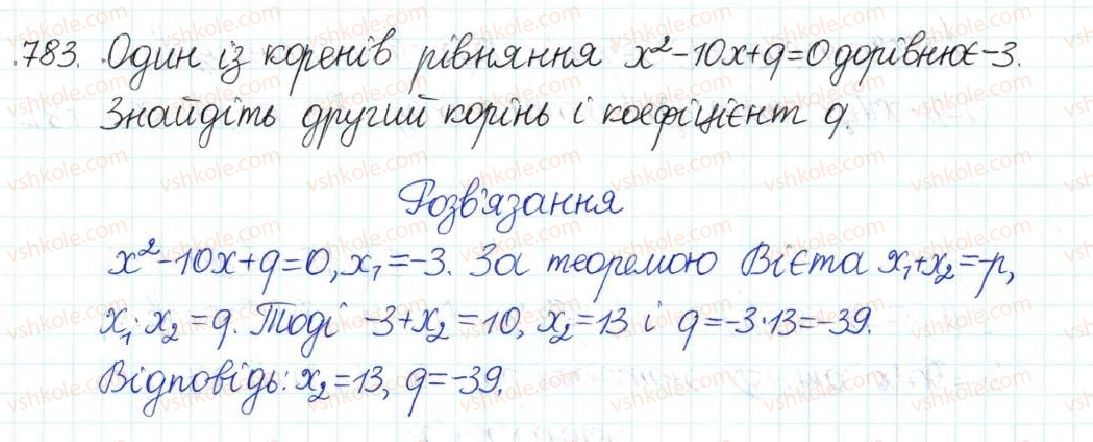 783. Один із коренів рівняння x²-10x+q=0 дорівнює -3.
Знайдіть другий корінь і коефіцієнт q.
Розв'язання
x²-10x+q=0, x₁=-3. За теоремою Вієта x₁+x₂=-p,
x₁·x₂=q. Тоді -3+x₂=10, x₂=13 і q=-3·13=-39.
Відповідь: x₂=13, q=-39.